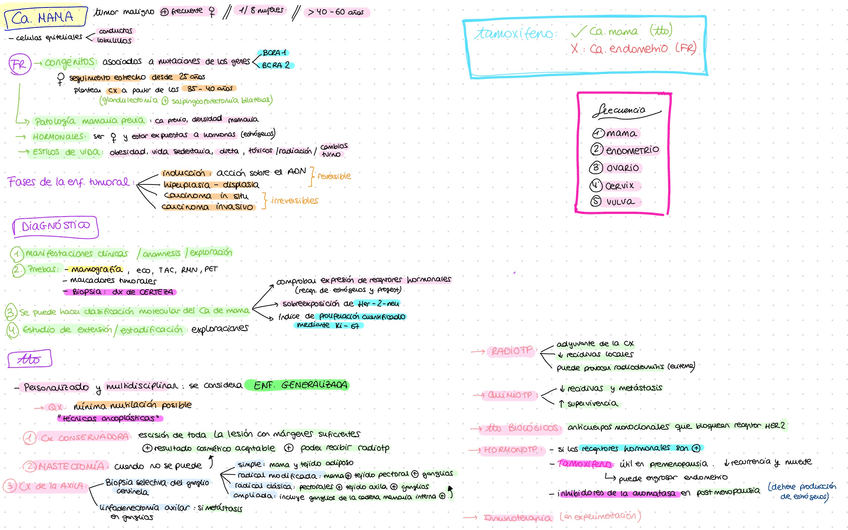 Ca. MAMA
tumor maligno ⊕ frecuente ♀ // 1/8 mujeres // > 40-60 años
- células epiteliales
conductos
lobulillos
FR → congénitos: asociados a mutaciones de los genes
BCRA-1
BCRA 2
♀ seguimiento estrecho desde 25 años
plantear cx a partir de los 35-40 años
(glandulectomía ⊕ salpingooforectomía bilateral)
→ Patología mamaria previa: ca previo, densidad mamaria
→ HORMONALES: ser ♀ y estar expuestas a hormonas (estrógenos)
→ ESTILOS DE VIDA: obesidad, vida sedentaria, dieta, tóxicos/radiación/cambios
turno
Fases de la enf. tumoral:
inducción: acción sobre el ADN
hiperplasia - displasia
reversible
carcinoma in situ
carcinoma invasivo
irreversibles
DIAGNÓSTICO
① manifestaciones clínicas / anamnesis / exploración
② Pruebas: - mamografía, eco, TAC, RMN, PET
- marcadores tumorales
- BIOPSIA: dx de CERTEZA
③ Se puede hacer clasificación molecular del Ca de mama
comprobar expresión de receptores hormonales
(recep. de estrógenos y progest)
sobreexposición de Her-2-neu
índice de proliferación cuantificado
mediante Ki-67
④ Estudio de extensión/estadificación: exploraciones
tto
- Personalizado y multidisciplinar: se considera ENF GENERALIZADA
→ Qx mínima mutilación posible
"técnicas oncoplásticas"
① Cx CONSERVADORA: escisión de toda la lesión con márgenes suficientes
⊕ resultado cosmético aceptable ⊕ poder recibir radiotp
② MASTECTOMÍA: cuando no se puede ↑
simple: mama y tejido adiposo
radical modificada: mama ⊕ tejido pectoral ⊕ ganglios
radical clásica: pectorales ⊕ tejido axila ⊕ ganglios
ampliada: incluye ganglios de la cadena mamaria interna ⊕
③ Cx de la AXILA
Biopsia selectiva del ganglio
centinela
linfadenectomía axilar: si metástasis
en ganglios
tamoxifeno: ✓ Ca. mama (tto)
X: Ca. endometrio (FR)
frecuencia
① mama
② ENDOMETRIO
③ OVARIO
④ CERVIX
⑤ VULVA
→ RADIOTP
adyuvante de la cx
↓ recidivas locales
puede provocar radiodermitis (eritema)
→ QUIMIOTP
↓ recidivas y metástasis
↑ supervivencia
→ tto BIOLÓGICOS: anticuerpos monoclonales que bloquean receptor HER2
→ HORMONOTP: - si los receptores hormonales son ⊕
- Tamoxifeno: útil en premenopausia. ↓ recurrencia y muerte
↳ puede engrosar endometrio
- inhibidores de la aromatasa en postmenopausia (detiene producción
de estrógenos)
→ Inmunoterapia (en experimentación)